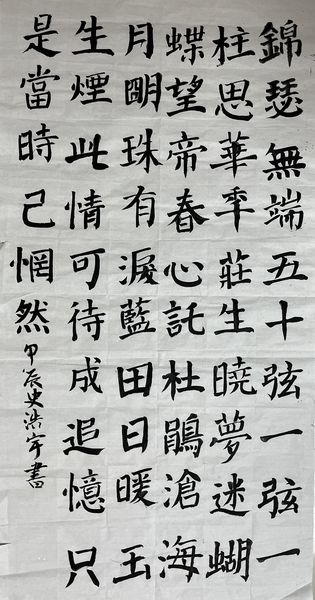 錦瑟無端五十弦一弦一
柱思華秊莊生曉夢迷蝴
蝶望帝春心託杜鵑滄海
月明珠有淚藍田日暖玉
生煙此情可待成追憶只
是當時已惘然甲辰史浩宇書